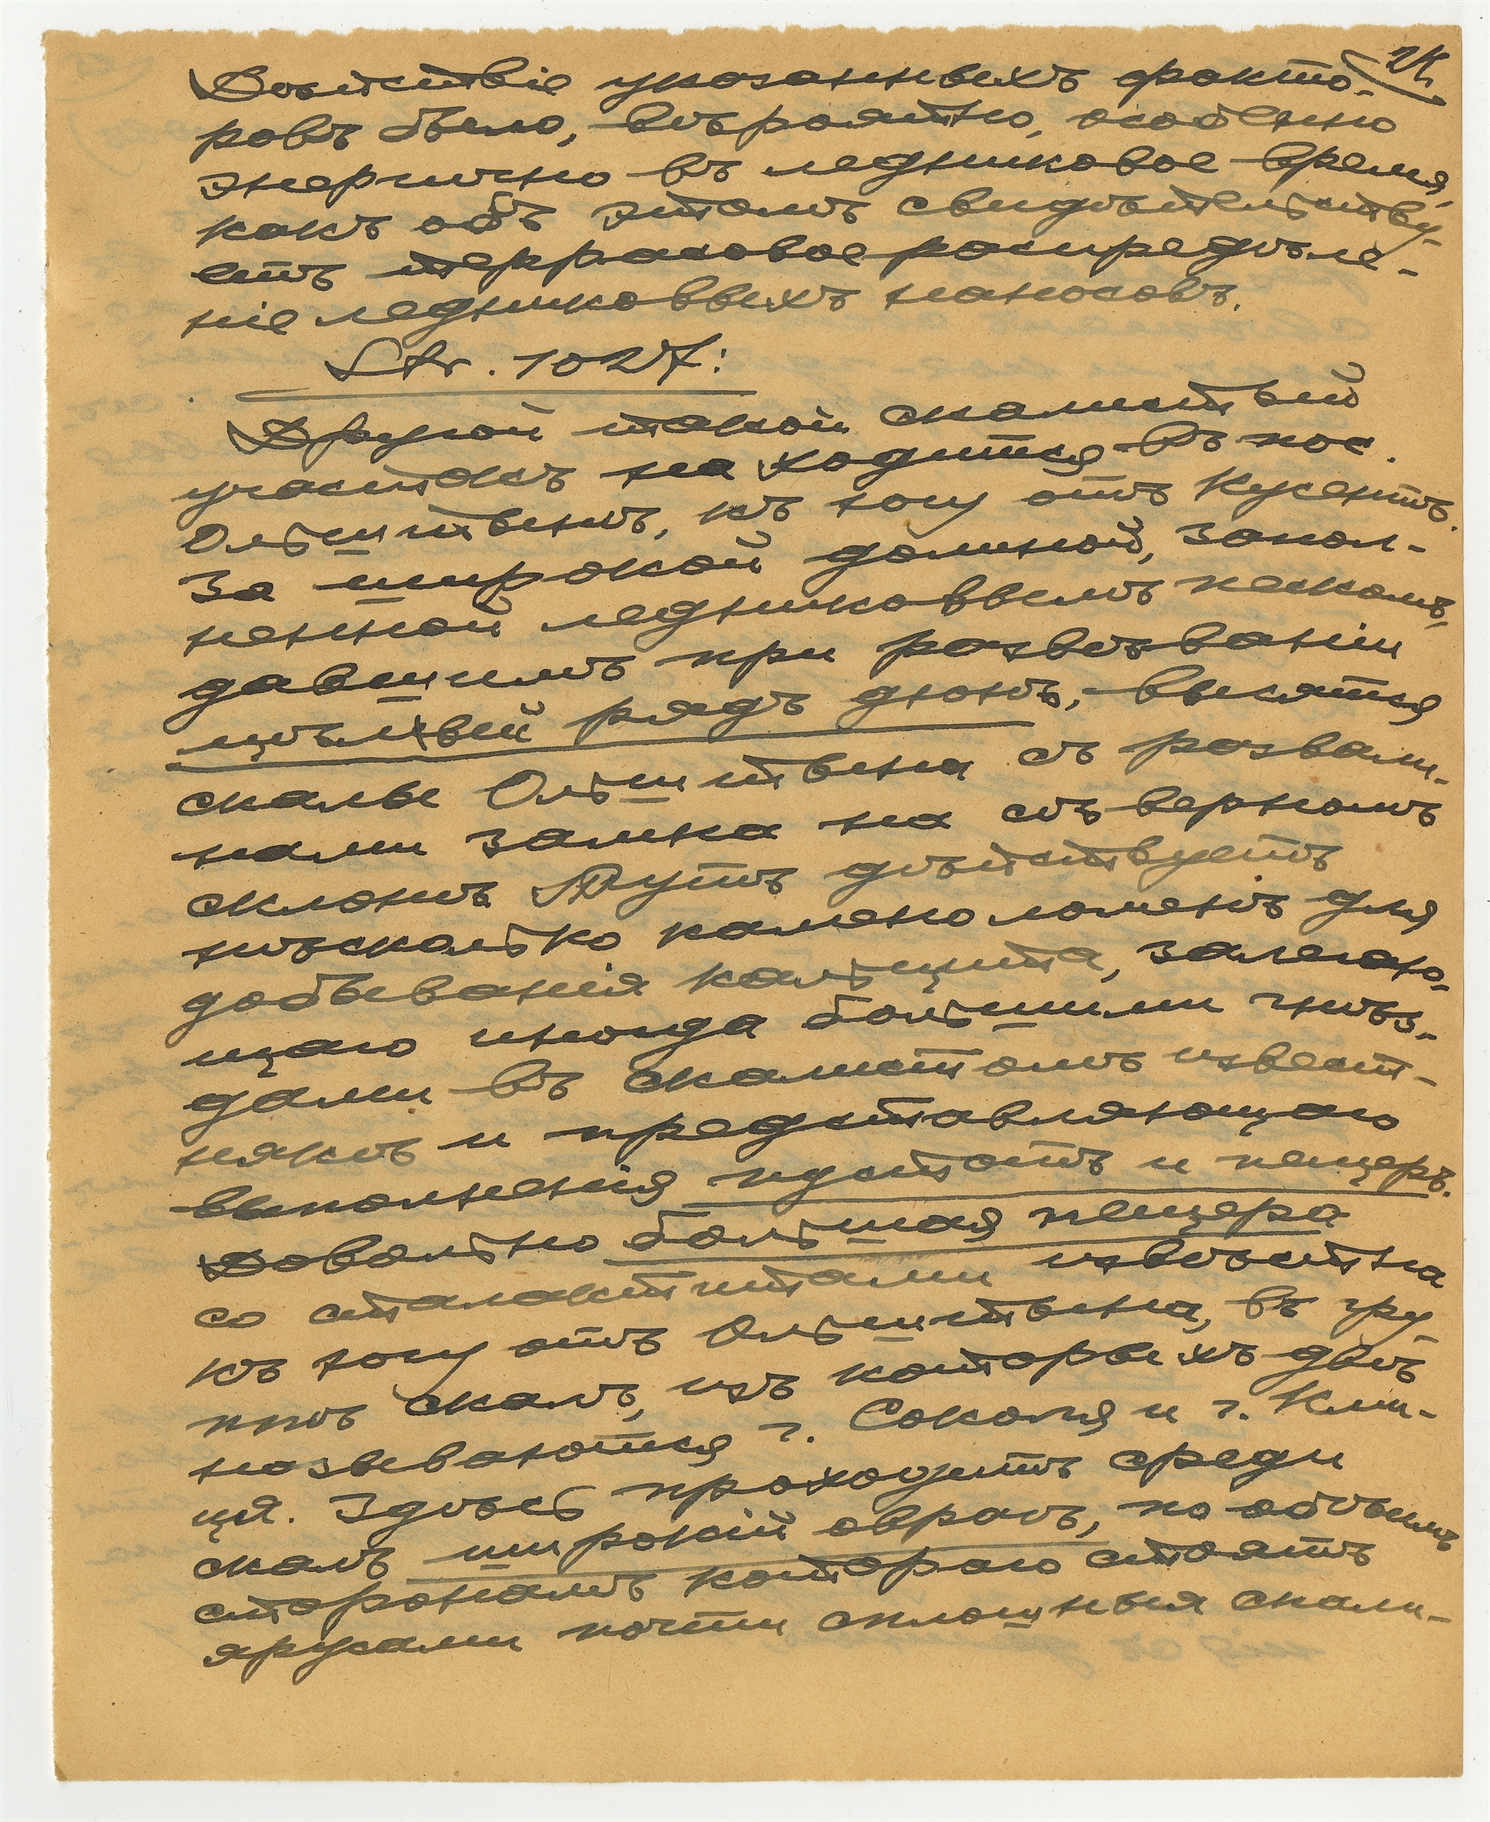 24.
Дѣйствіе указанныхъ факто-
ровъ было, вѣроятно, особенно
энергично въ ледниковое время,
какъ объ этомъ свидѣтельству-
етъ террасовое распредѣле-
ніе ледниковыхъ наносовъ.
Str. 1027:
Другой такой скалистый
участокъ находится въ пос.
Ольштынѣ, къ югу отъ Кусентъ.
За широкой долиной, запол-
ненной ледниковымъ пескомъ,
давшимъ при развѣваніи
цѣлый рядъ дюнъ, высятся
скалы Ольштына съ развали-
нами замка на сѣверномъ
склонѣ. Тутъ дѣйствуетъ
нѣсколько каменоломенъ для
добыванія кальцита, залегаю-
щаго иногда большими гнѣз-
дами въ скалистомъ извест-
някѣ и представляющаго
выполненія пустотъ и пещеръ.
Довольно большая пещера
со сталактитами извѣстна
къ югу отъ Ольштына, въ гру-
ппѣ скалъ, изъ которыхъ двѣ
называются г. Соколя и г. Кли-
ця. Здѣсь проходитъ среди
скалъ широкій оврагъ, по обѣимъ
сторонамъ котораго стоятъ
ярусами почти сплошныя скали-